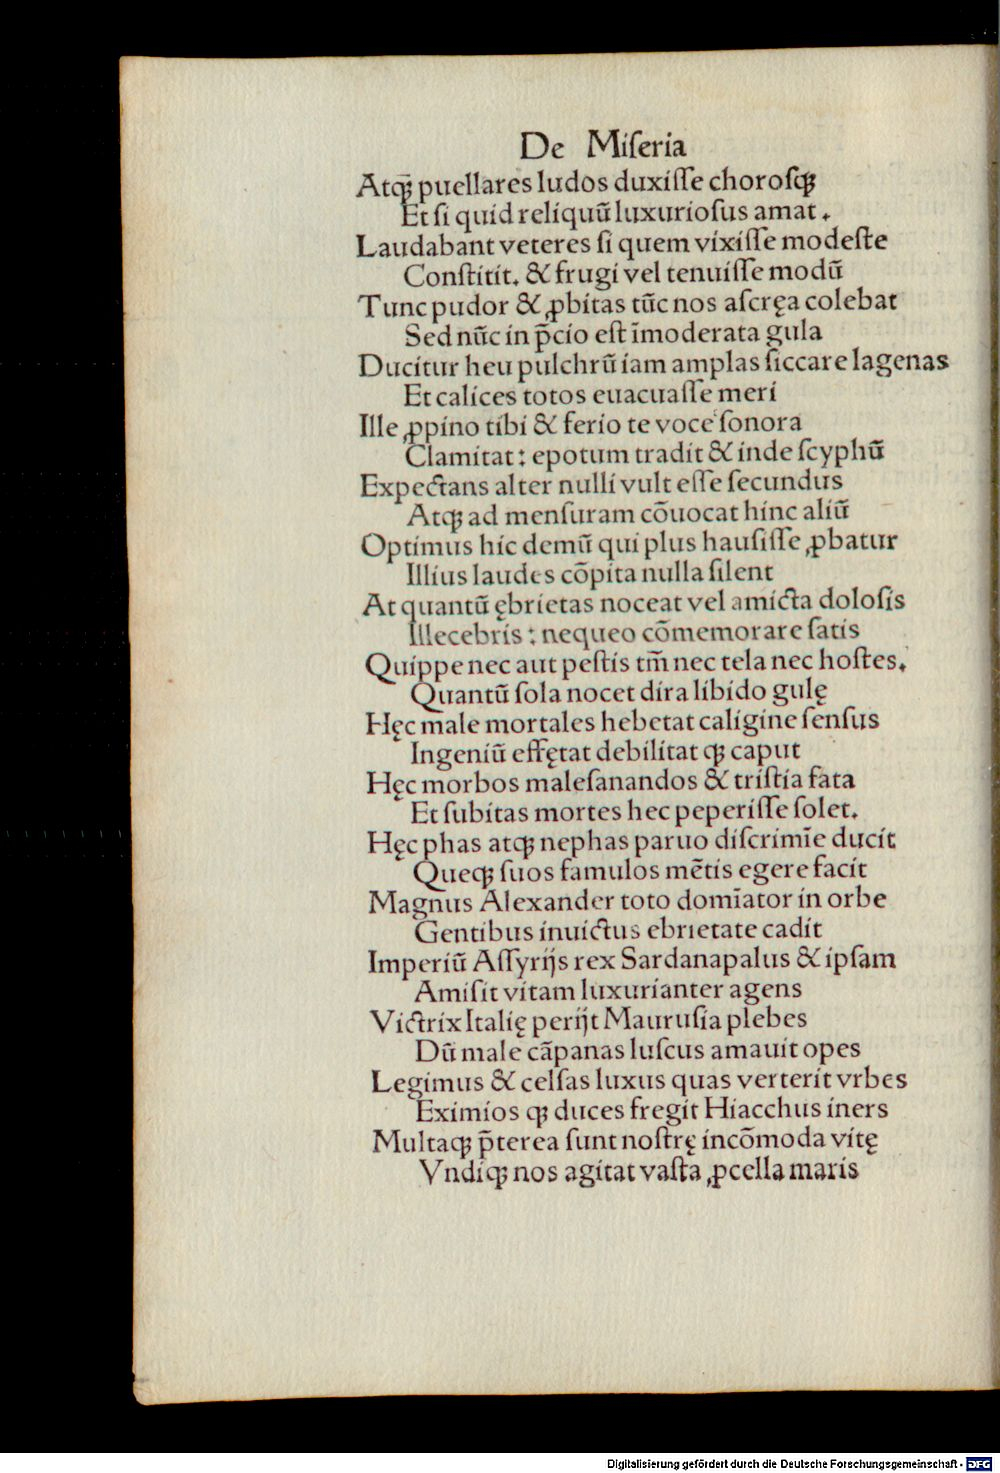 De Miſeria
Atqꝫ puellares ludos duxiſſe choroſqꝫ
Et ſi quid reliquū luxurioſus amat.
Laudabant veteres ſi quem vixiſſe modeſte
Conſtitit. & frugi vel tenuiſſe modū
Tunc pudor & ꝓbitas tūc nos aſcręa colebat
Sed nūc in p̄cio eſt īmoderata gula
Ducitur heu pulchrū iam amplas ſiccare lagenas
Et calices totos euacuaſſe meri
Ille ꝓpino tibi & ferio te voce ſonora
Clamitat: epotum tradit & inde ſcyphū
Expectans alter nulli vult eſſe ſecundus
Atqꝫ ad menſuram cōuocat hinc aliū
Optimus hic demū qui plus hauſiſſe ꝓbatur
Illius laudes cōpita nulla ſilent
At quantū ębrietas noceat vel amicta doloſis
Illecebris: nequeo cōmemorare ſatis
Quippe nec aut peſtis tm̄ nec tela nec hoſtes.
Quantū ſola nocet dira libido gulę
Hęc male mortales hebetat caligine ſenſus
Ingeniū effętat debilitat qꝫ caput
Hęc morbos maleſanandos & triſtia fata
Et ſubitas mortes hec peperiſſe ſolet.
Hęc phas atqꝫ nephas paruo diſcrimīe ducit
Queqꝫ ſuos famulos mētis egere facit
Magnus Alexander toto domīator in orbe
Gentibus inuictus ebrietate cadit
Imperiū Aſſyrijs rex Sardanapalus & ipſam
Amiſit vitam luxurianter agens
Victrix Italię perijt Mauruſia plebes
Dū male cāpanas luſcus amauit opes
Legimus & celſas luxus quas verterit vrbes
Eximios qꝫ duces fregit Hiacchus iners
Multaqꝫ p̄terea ſunt noſtrę incōmoda vitę
Vndiqꝫ nos agitat vaſta ꝓcella maris
Digitalisierung gefördert durch die Deutsche Forschungsgemeinschaft - DFG